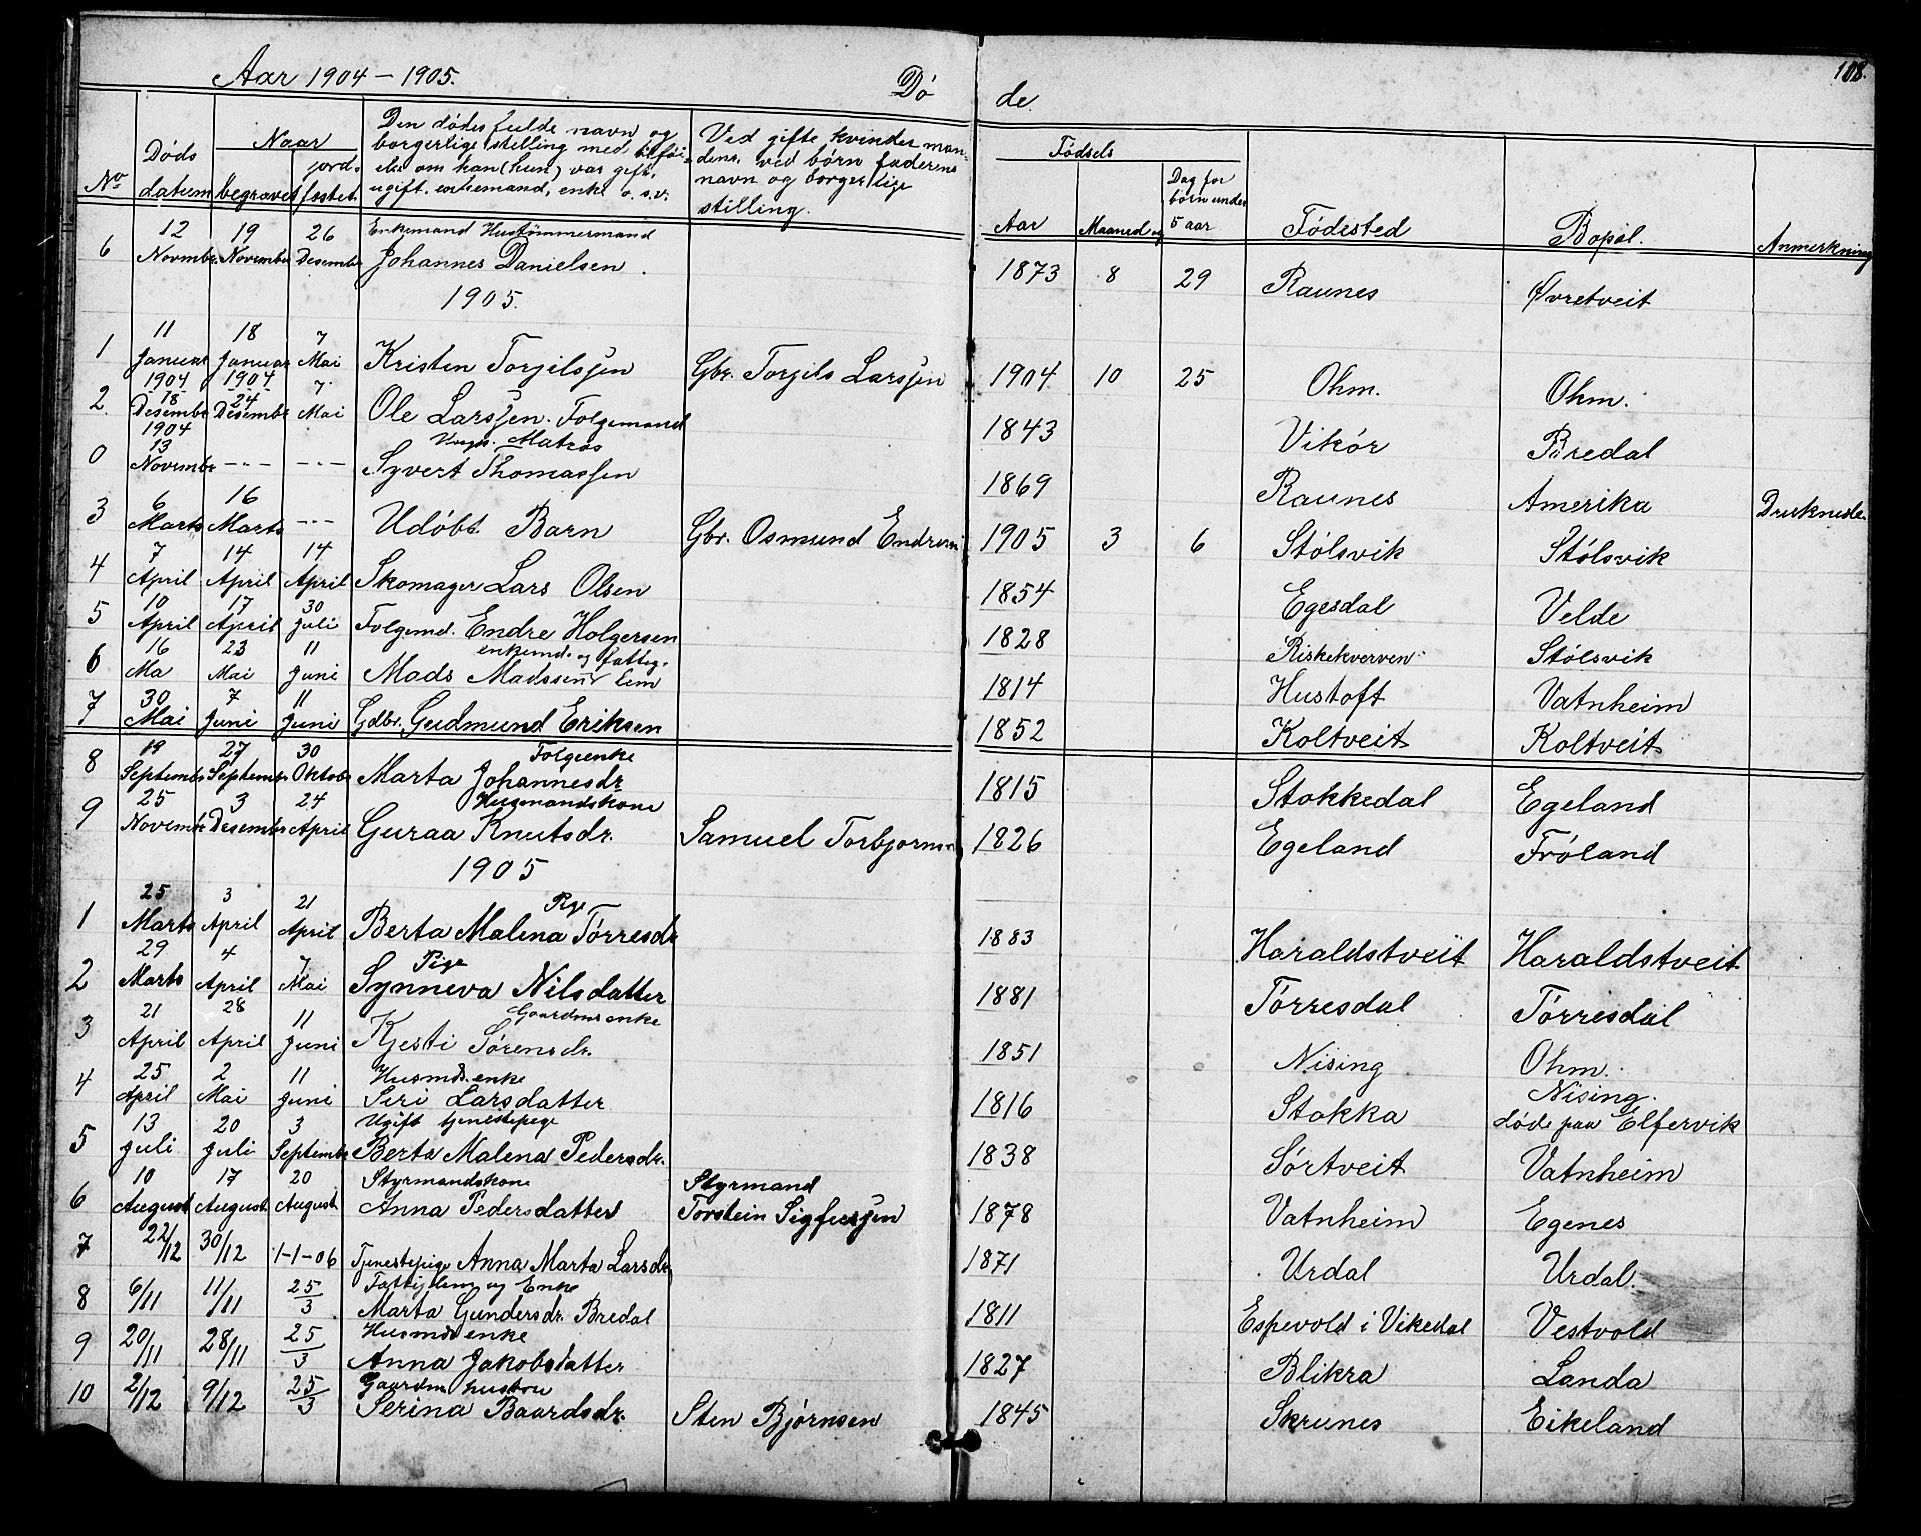 Aar 1904 – 1905. Dö de. 108.
No Döds datum Naar begravet jord- fæstet. Den dödes fulde navn og borgerlige stilling med tilföi- else om han (hun) var gift, ugift, enkemand, enke o.s.v. Ved gifte kvinder man- dens, ved börn faderens navn og borgerlige stilling. Födsels Aar Maaned og Dag for börn under 5 aar Födested Bopæl. Anmerkning
Enkemand Hustömmermand
6 12 Novmbr. 19 Novembr 26 Desembr Johannes Danielsen. 1873 8 29 Raunes Övretveit
1905.
1 11 Januar 18 Januar 7 Mai Kristen Torgilssen Gbr. Torgils Larssen 1904 10 25 Ohm. Ohm.
2. 1904 18 Desembr 1904 24 Desembr 7 Mai Ole Larssen. Folgemand 1843 Vikör Bredal
Ungk. Matros
0 1904 13 Novembr --- --- Syvert Thomassen 1869 Raunes Amerika Druknede.
3 6 Marts 16 Marts --- Udöbt Barn Gbr. Osmund Endresen 1905 3 6 Stölsvik Stölsvik
4 7 April 14 April 14 April Skomager Lars Olsen 1854 Egesdal Velde
5 10 April 17 April 30 Juli Folgemd. Endre Holgersen 1828 Riskekverven Stölsvik
enkemd. og fattig-
6 16 Ma 23 Mai 11 Juni Mads Madssen lem 1814 Hustoft Vatnheim
7 30 Mai 7 Juni 11 Juni Gdbr. Gudmund Eriksen 1852 Koltveit Koltveit
Folgeenke
8 19 Septembr 27 Septembr 30 Oktobr Marta Johannesdr 1815 Stokkedal Egeland
Husmandskone
9 25 Novembr 3 Desembr 24 April Guraa Knutsdr. Samuel Torbjornsen 1826 Egeland Fröland
1905
Pige
1 25 Marts 3 April 21 April Berta Malena Törresdr 1883 Haraldstveit Haraldstveit
Pige
2 29 Marts 4 April 7 Mai Synneva Nilsdatter 1881 Törresdal Törresdal
Gaardmrs enke
3 21 April 28 April 11 Juni Kjesti Sörensdr. 1851 Nising Ohm.
Husmds. enke Nising.
4 25 April 2 Mai 11 Juni Siri Larsdatter 1816 Stokka döde paa Elfervik
Ugift tjenestepige
5 13 Juli 20 Juli 3 Septembr Berta Malena Pedersdr. 1838 Sörtveit Vatnheim
Styrmandskone Styrmand
6 10 August 17 August 20 August Anna Pedersdatter Torstein Sigfussen 1878 Vatnheim Egenes
7 22/12 30/12 1-1-06 Tjenestepige Anna Marta Larsdr 1871 Urdal Urdal.
Fattiglem og Enke
8 6/11 11/11 25/3 Marta Gundersdr. Bredal 1811 Espevold i Vikedal Vestvold
Husmds enke
9 20/11 28/11 25/3 Anna Jakobsdatter 1827 Blikra Landa
Gaardm hustru
10 2/12 9/12 25/3 Serina Baardsdr. Sten Björnsen 1845 Skrunes Eikeland